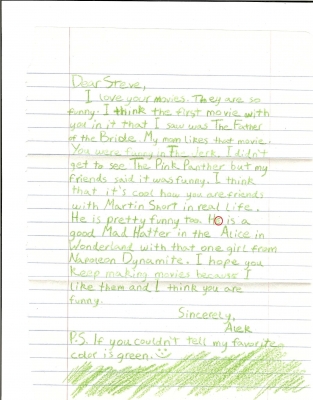 Dear Steve,
I love your movies. They are so
funny. I think the first movie with
you in it that I saw was The Father
of the Bride. My mom likes that movie.
You were funny in The Jerk. I didn't
get to see The Pink Panther but my
friends said it was funny. I think
that it's cool how you are friends
with Martin Short in real life.
He is pretty funny too. He is a
good Mad Hatter in the Alice in
Wonderland with that one girl from
Napoleon Dynamite. I hope you
keep making movies because I
like them and I think you are
funny.
Sincerely,
Alek
P.S. If you couldn't tell my favorite
color is green.